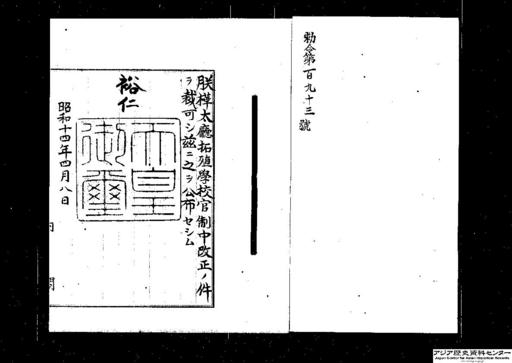 勅令第百九十三號
朕樺太廳拓殖學校官制中改正ノ件
ヲ裁可シ茲ニ之ヲ公布セシム
裕仁
天皇
御璽
昭和十四年四月八日
内閣
アジア歴史資料センター
Japan Center for Asian Historical Records